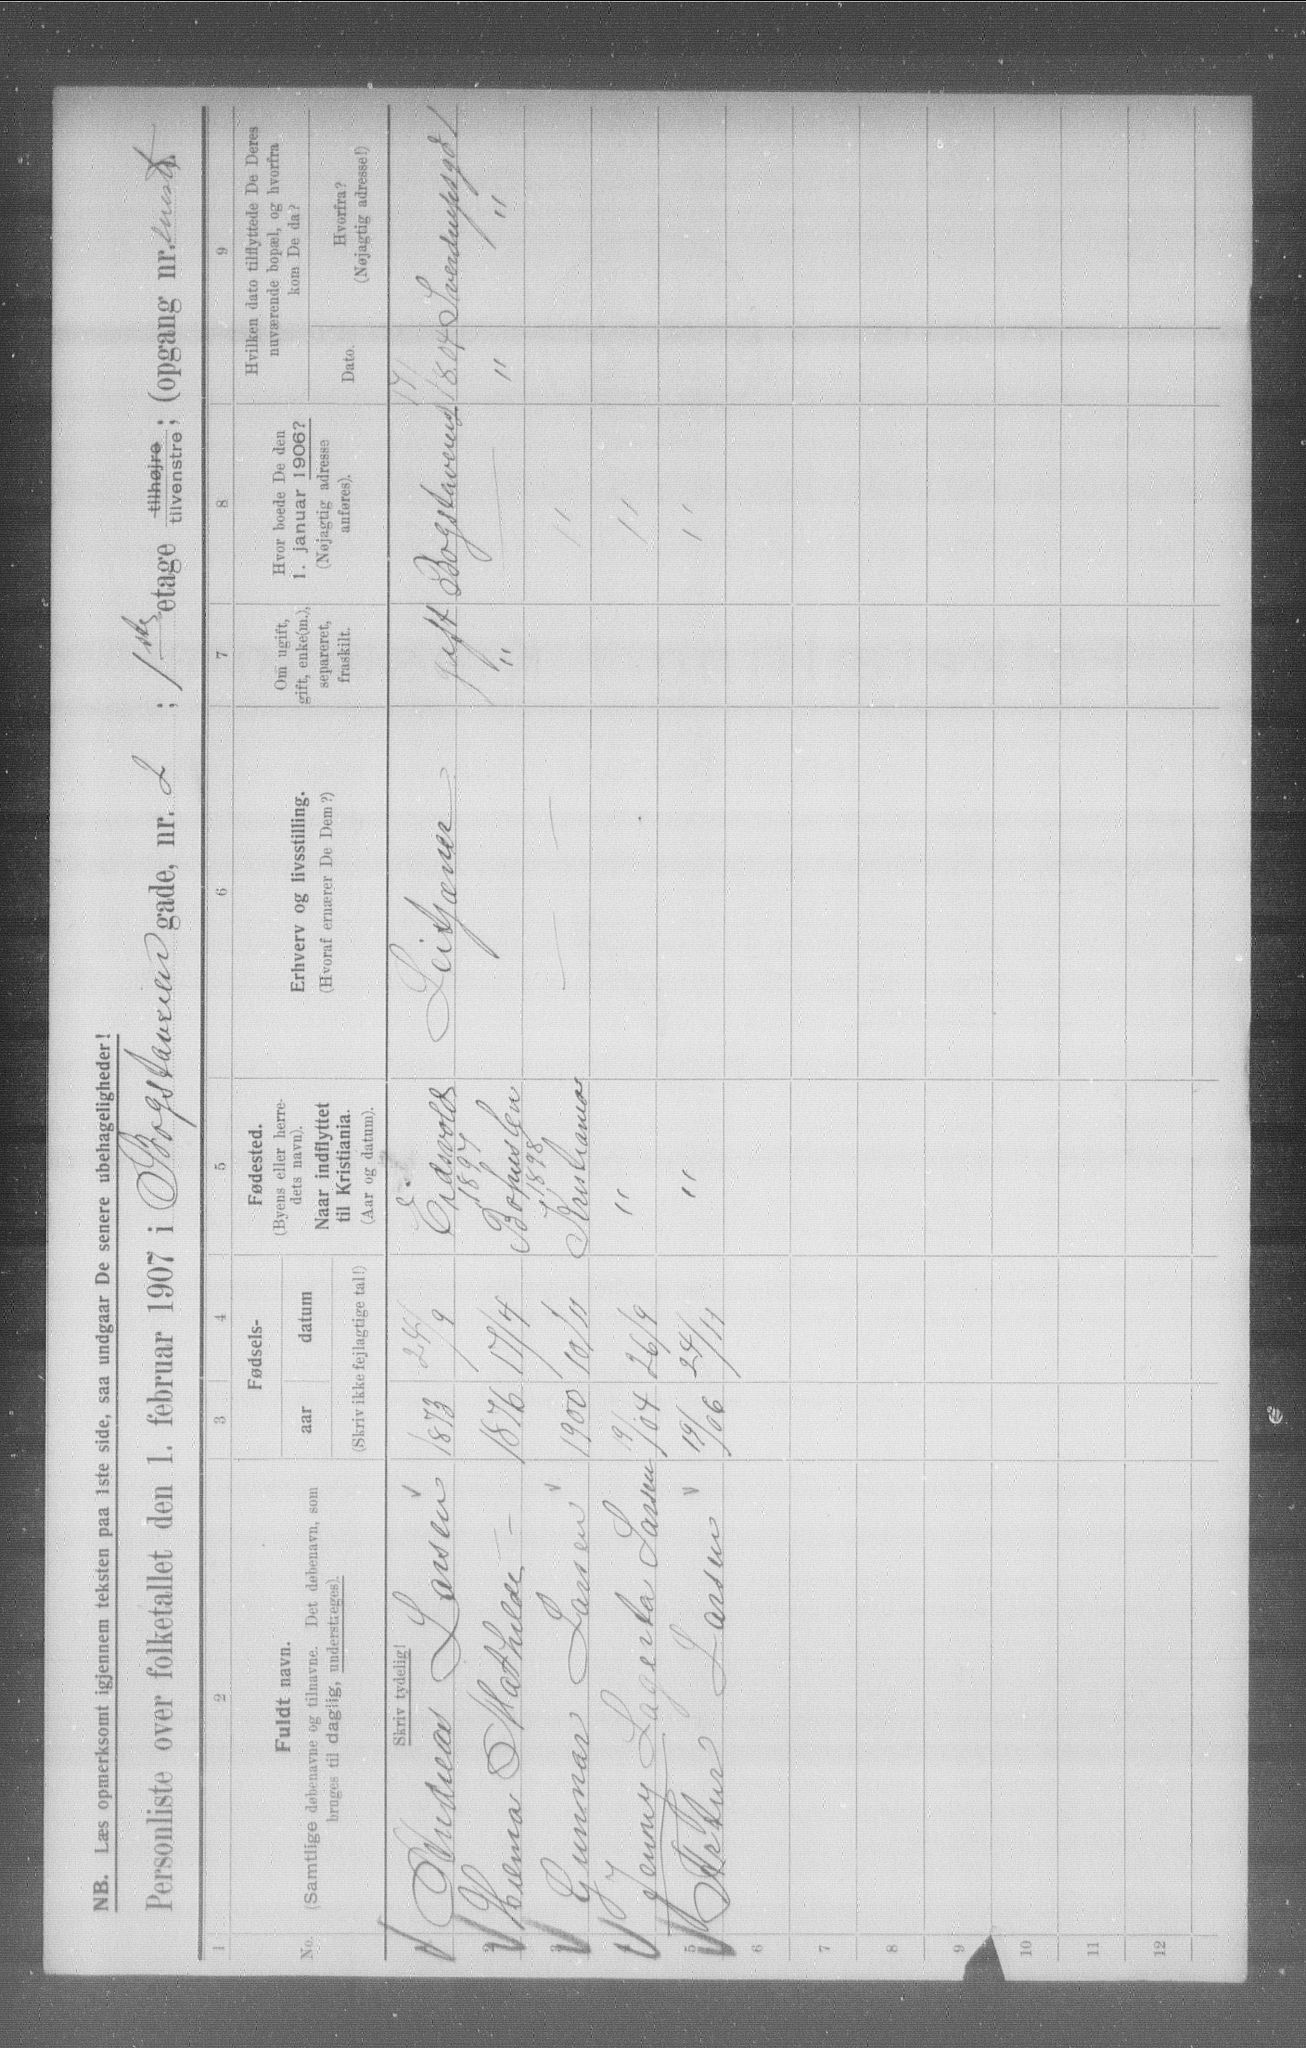 NB. Læs opmerksomt igjennem teksten paa 1ste side, saa undgaar De senere ubehageligheder!
Personliste over folketallet den 1. februar 1907 i Bogstaveien gade, nr. 2 ; 1ste etage tilhøjre tilvenstre; (opgang nr.
1 2 3 4 5 6 7 8 9
No.
Fuldt navn.
(Samtlige døbenavne og tilnavne. Det døbenavn, som
bruges til daglig, understreges).
Fødsels-
aar datum
(Skriv ikke fejlagtige tal!)
Fødested.
(Byens eller herre-
dets navn).
Naar indflyttet
til Kristiania.
(Aar og datum).
Erhverv og livsstilling.
(Hvoraf ernærer De Dem?)
Om ugift,
gift, enke(m.),
separeret,
fraskilt.
Hvor boede De den
1. januar 1906?
(Nøjagtig adresse
anføres).
Hvilken dato tilflyttede De Deres
nuværende bopæl, og hvorfra
kom De da?
Dato.
Hvorfra?
(Nøjagtig adresse!)
Skriv tydelig!
Andreas Larsen 1873 24/9 Eidsvold 1897 gift
Mathilde — 1876 17/4 1898 " — " "
3 Gunnar Larsen 1900 10/11 Kristiania — — "
Jenny Lagerta Larsen 19/04 26/9 " "
5 Artur Larsen 19/06 24/11 " "
6
7
8
9
10
11
12